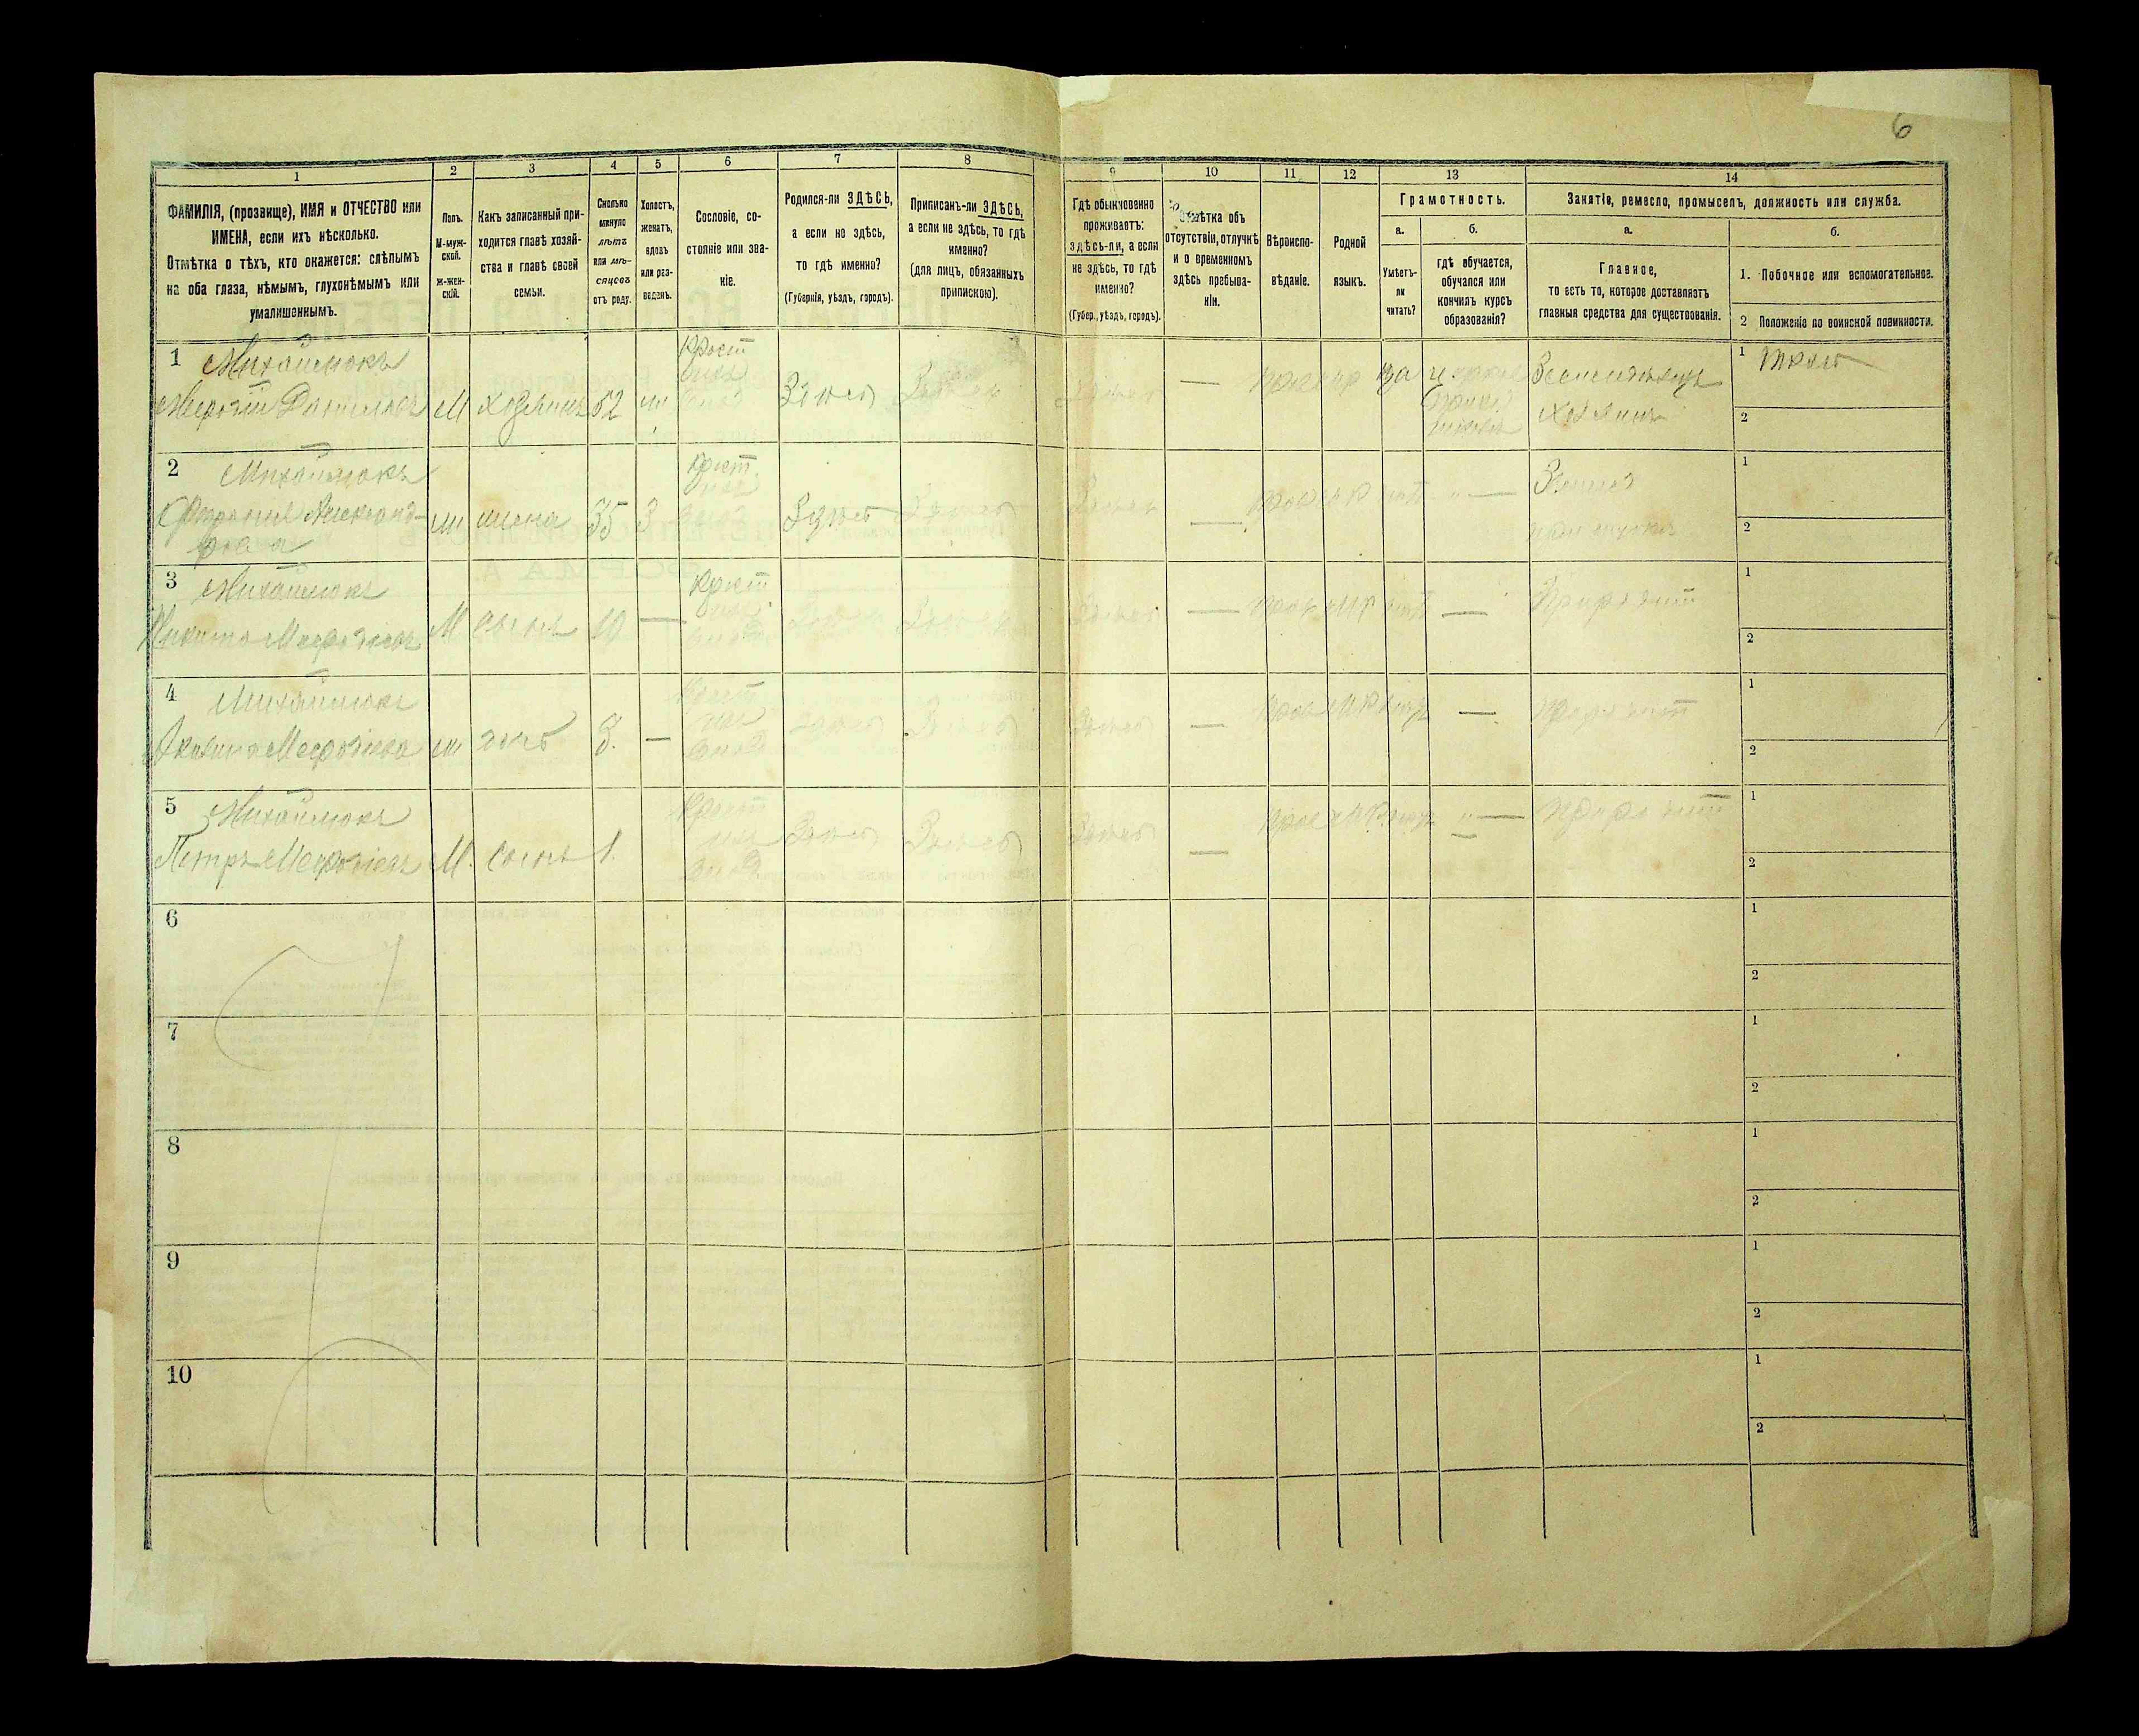 6
1
2
3
4
5
6
7
8
9
10
11
12
13
14
ФАМИЛІЯ, (прозвище), ИМЯ и ОТЧЕСТВО или
ИМЕНА, если ихъ нѣсколько.
Отмѣтка о тѣхъ, кто окажется: слѣпымъ
на оба глаза, нѣмымъ, глухонѣмымъ или
умалишеннымъ.
Полъ.
М-муж-
ской.
ж-жен-
скій.
Какъ записанный при-
ходится главѣ хозяй-
ства и главѣ своей
семьи.
Сколько
минуло
лѣтъ
или мѣ-
сяцевъ
отъ роду.
Холостъ,
женатъ,
вдовъ
или раз-
веденъ.
Сословіе, со-
стояніе или зва-
ніе.
Родился-ли ЗДѢСЬ,
а если не здѣсь,
то гдѣ именно?
(Губернія, уѣздъ, городъ).
Приписанъ-ли ЗДѢСЬ,
а если не здѣсь, то гдѣ
именно?
(для лицъ, обязанныхъ
припискою).
Гдѣ обыкновенно
проживаетъ:
здѣсь-ли, а если
не здѣсь, то гдѣ
именно?
(Губер., уѣздъ, городъ).
Отмѣтка объ
отсутствіи, отлучкѣ
и о временномъ
здѣсь пребыва-
ніи.
Вѣроиспо-
вѣданіе.
Родной
языкъ.
Грамотность.
а.
Умѣетъ-
ли
читать?
б.
гдѣ обучается,
обучался или
кончилъ курсъ
образованія?
Занятіе, ремесло, промыселъ, должность или служба.
а.
Главное,
то есть то, которое доставляетъ
главныя средства для существованія.
б.
1. Побочное или вспомогательное.
2 Положеніе по воинской повинности.
1 Михайлюкъ
Мефодій Даниловъ М хозяинъ 52 ж Крест Здѣсь Здѣсь Здѣсь — да Земледѣлецъ
хозяинъ
1
2
2 Михайлюкъ
Александ-
рова ж жена 35 З Крест. Здѣсь Здѣсь Здѣсь — —
1
2
3 Михайлюкъ
Никита Мефодіевъ М сынъ 10 — Крест Здѣсь Здѣсь Здѣсь — —
1
2
4 Михайлюкъ
Акилина Мефодіева ж дочь 8. — Крест Здѣсь Здѣсь Здѣсь — —
1
2
5 Михайлюкъ
Петръ Мефодіевъ М. сынъ 1. Крест Здѣсь Здѣсь Здѣсь — —
1
2
6
1
2
7
1
2
8
1
2
9
1
2
10
1
2